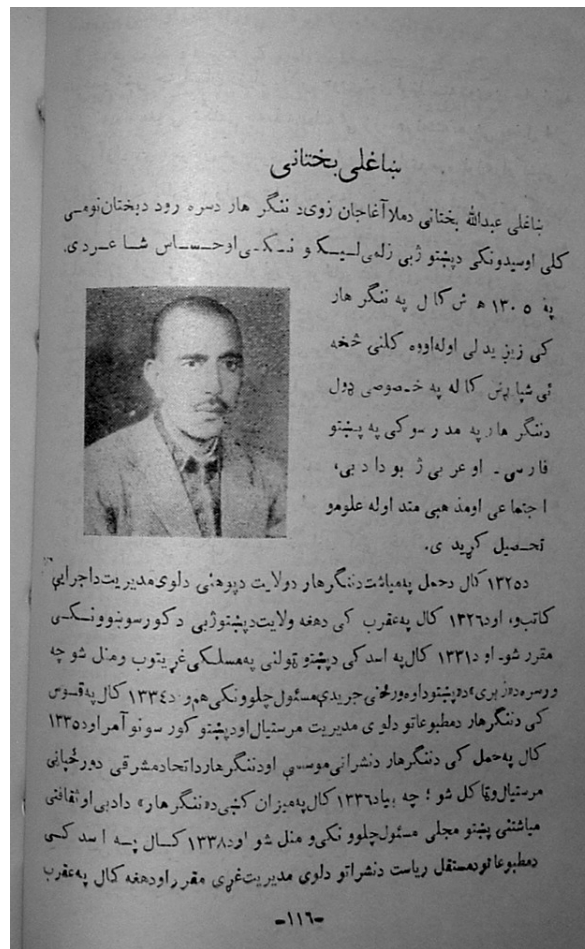 ښاغلی بختانی
ښاغلی عبدالله بختانی دملا آغاجان زوی د ننگر هار دسره رود دبختان نومی
کلی اوسیدونکی دپښتو ژبی زلمی لیکو نکی اوحساس شاعر دی.
په ۱۳۰۵ ه ش کال په ننگر هار
کی زیږیدلی اوله اووه کلنی څخه
ئی شپاړس کاله په خصوصی ډول
دننگر هار په مدرسو کی په پښتو
فارسی ـ او عربی ژبو دادبی،
اجتماعی اومذهبی متداوله علومو
تحصیل کړیدی.
د۱۳۲۵ کال دحمل په میاشت دننگرهار دولایت دپوهنی دلوی مدیریت داجرایې
کاتب و، اود۱۳۲۶ کال په عقرب کی دهغه ولایت دپښتوژبی دکورسوښوونکی
مقرر شو. او د۱۳۳۱ کال په اسد کی دپښتو ټولنی په مسلکی غړیتوب ومنل شو چه
ورسره د«زیری» دپښتو داوه ورځنی جریدی مسئول چلوونکی هم و. د۱۳۳٤ کال په قوس
کی دننگرهار دمطبوعاتو دلوی مدیریت مرستیال اودپښتو کور سونو آمر اود۱۳۳۵
کال په حمل کی دننگرهار دنشراتی موسسې اودننگرهار داتحاد مشرقی دورځپانی
مرستیال وټاکل شو ؛ چه بیاد۱۳۳۶ کال په میزان کښی د«ننگرهار» دادبی اوثقافتی
میاشتنی پښتو مجلی مسئول چلوو نکی و منل شو اود۱۳۳۸ کال په اسد کی
دمطبوعاتو دمستقل ریاست دنشراتو دلوی مدیریت غړی مقرر اودهغه کال په عقرب
-۱۱۶-